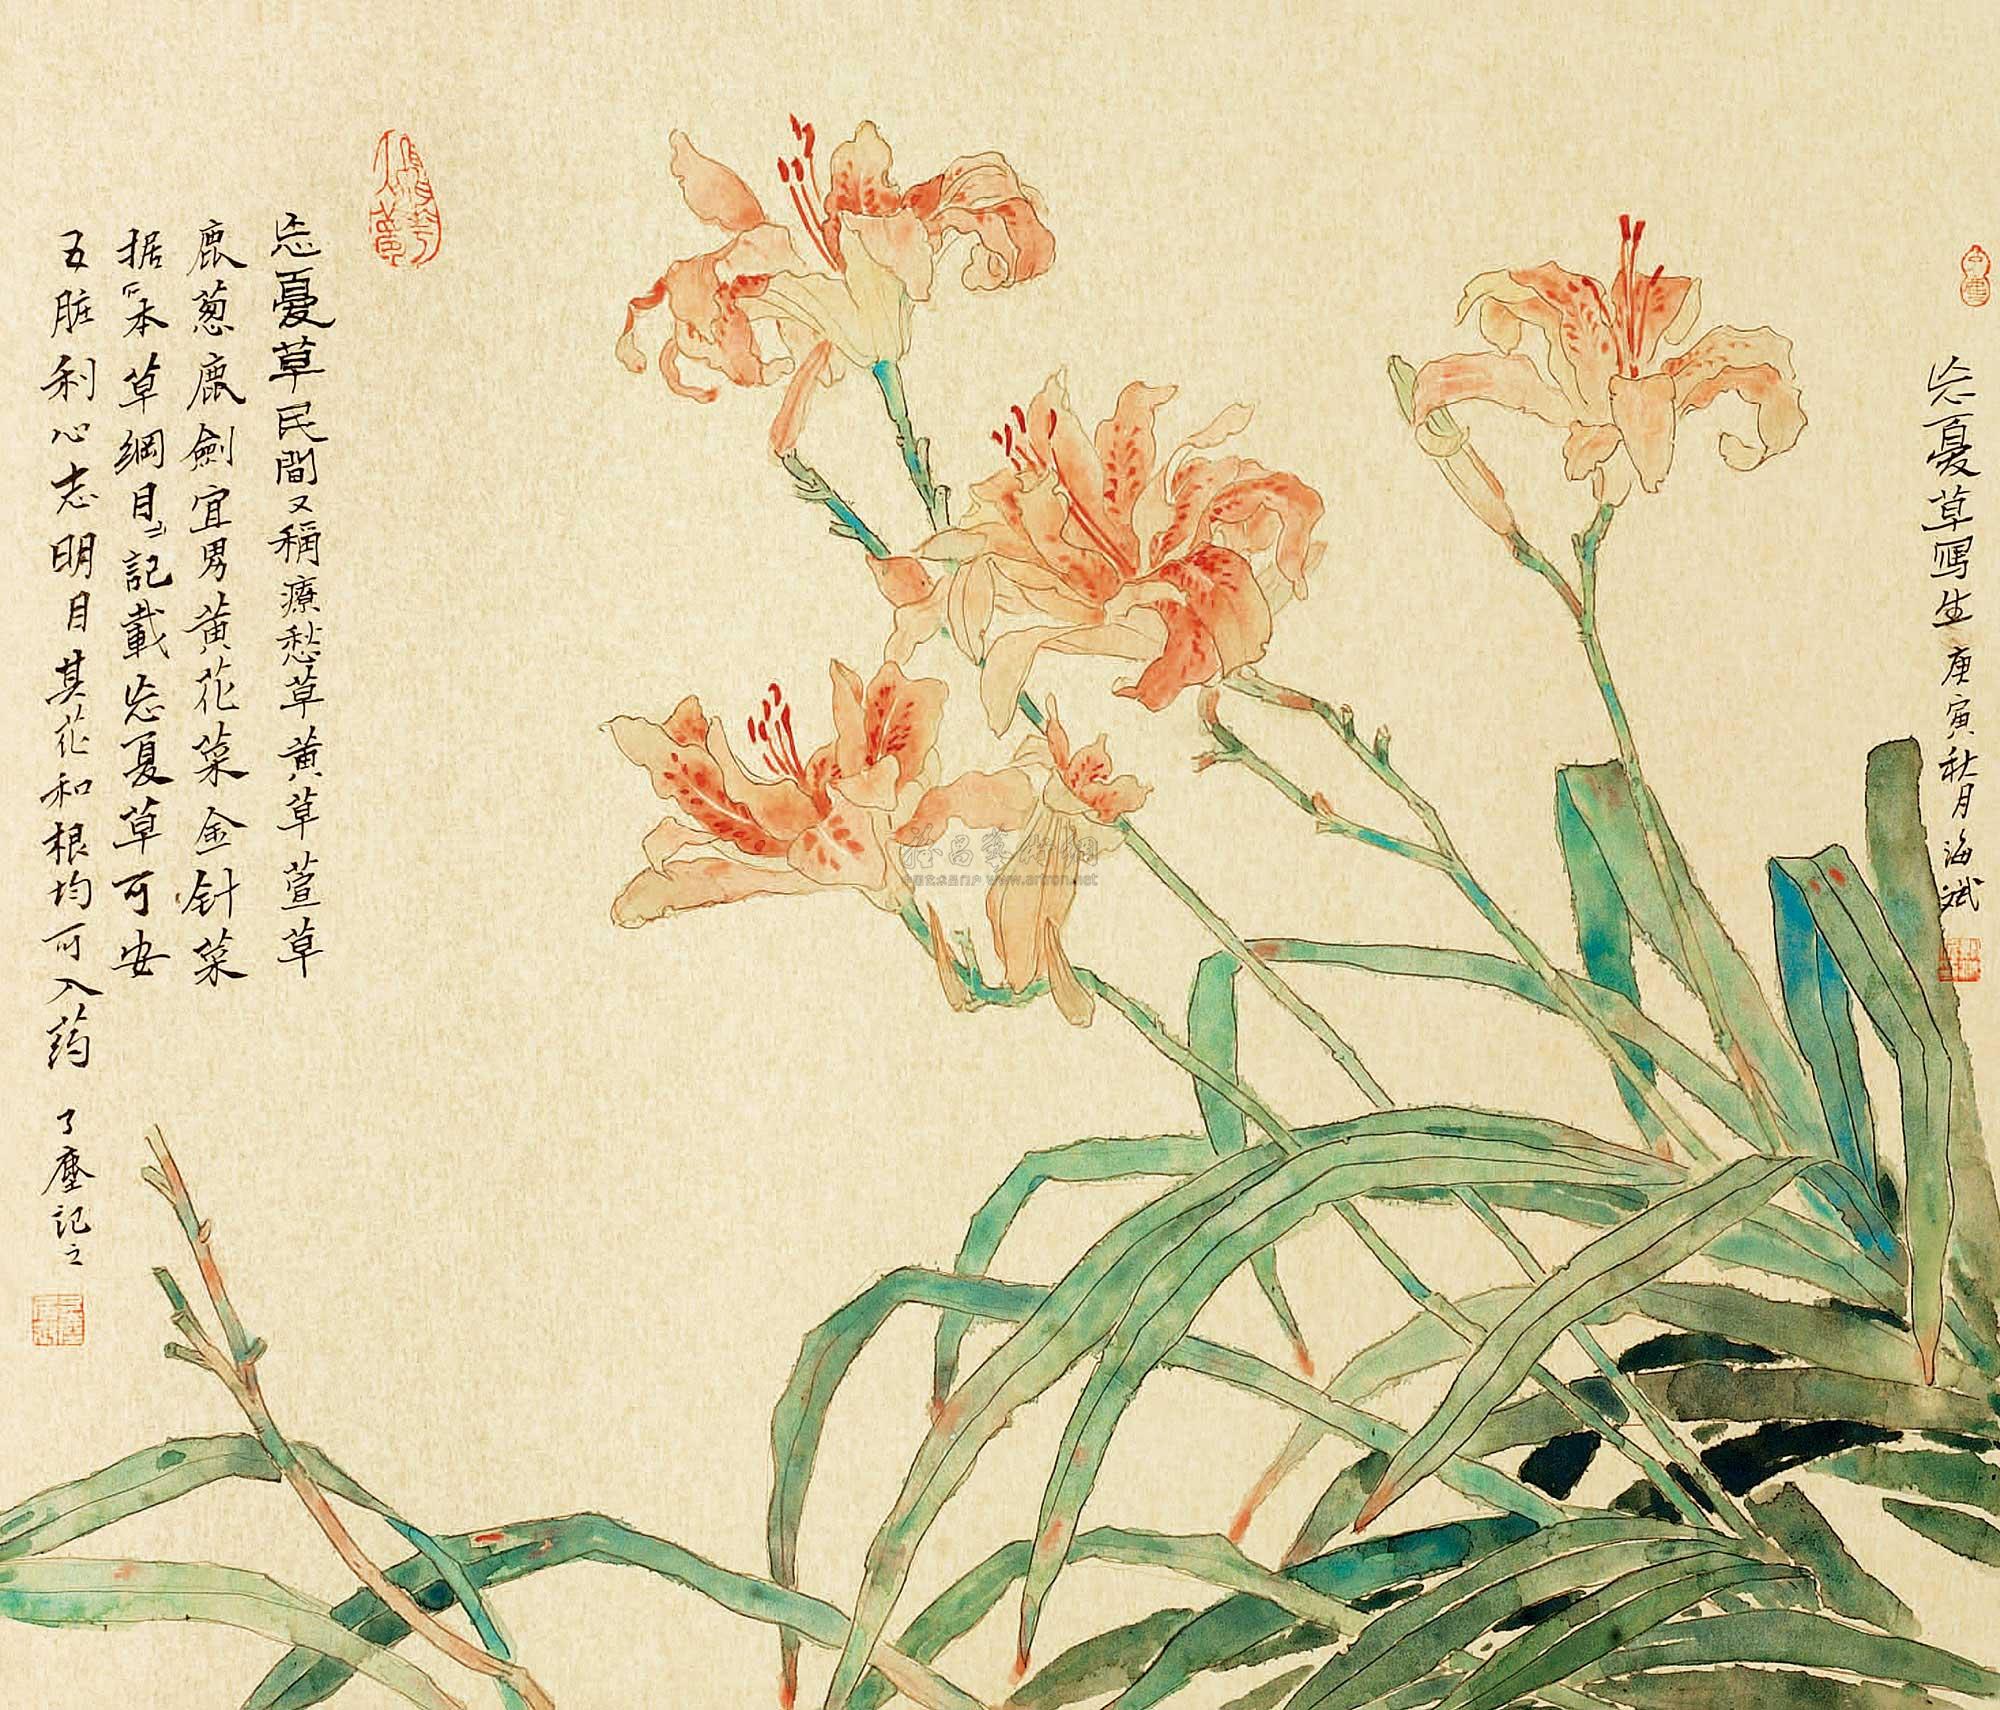 忘憂草写生 庚寅秋月 海斌
忘憂草民間又稱療愁草黄草萱草
鹿葱鹿劍宜男黄花菜金针菜
据《本草綱目》記載忘憂草可安
五脏利心志明目其花和根均可入药 了塵記之
雅昌藝術網
中国艺术品门户 www.artron.net